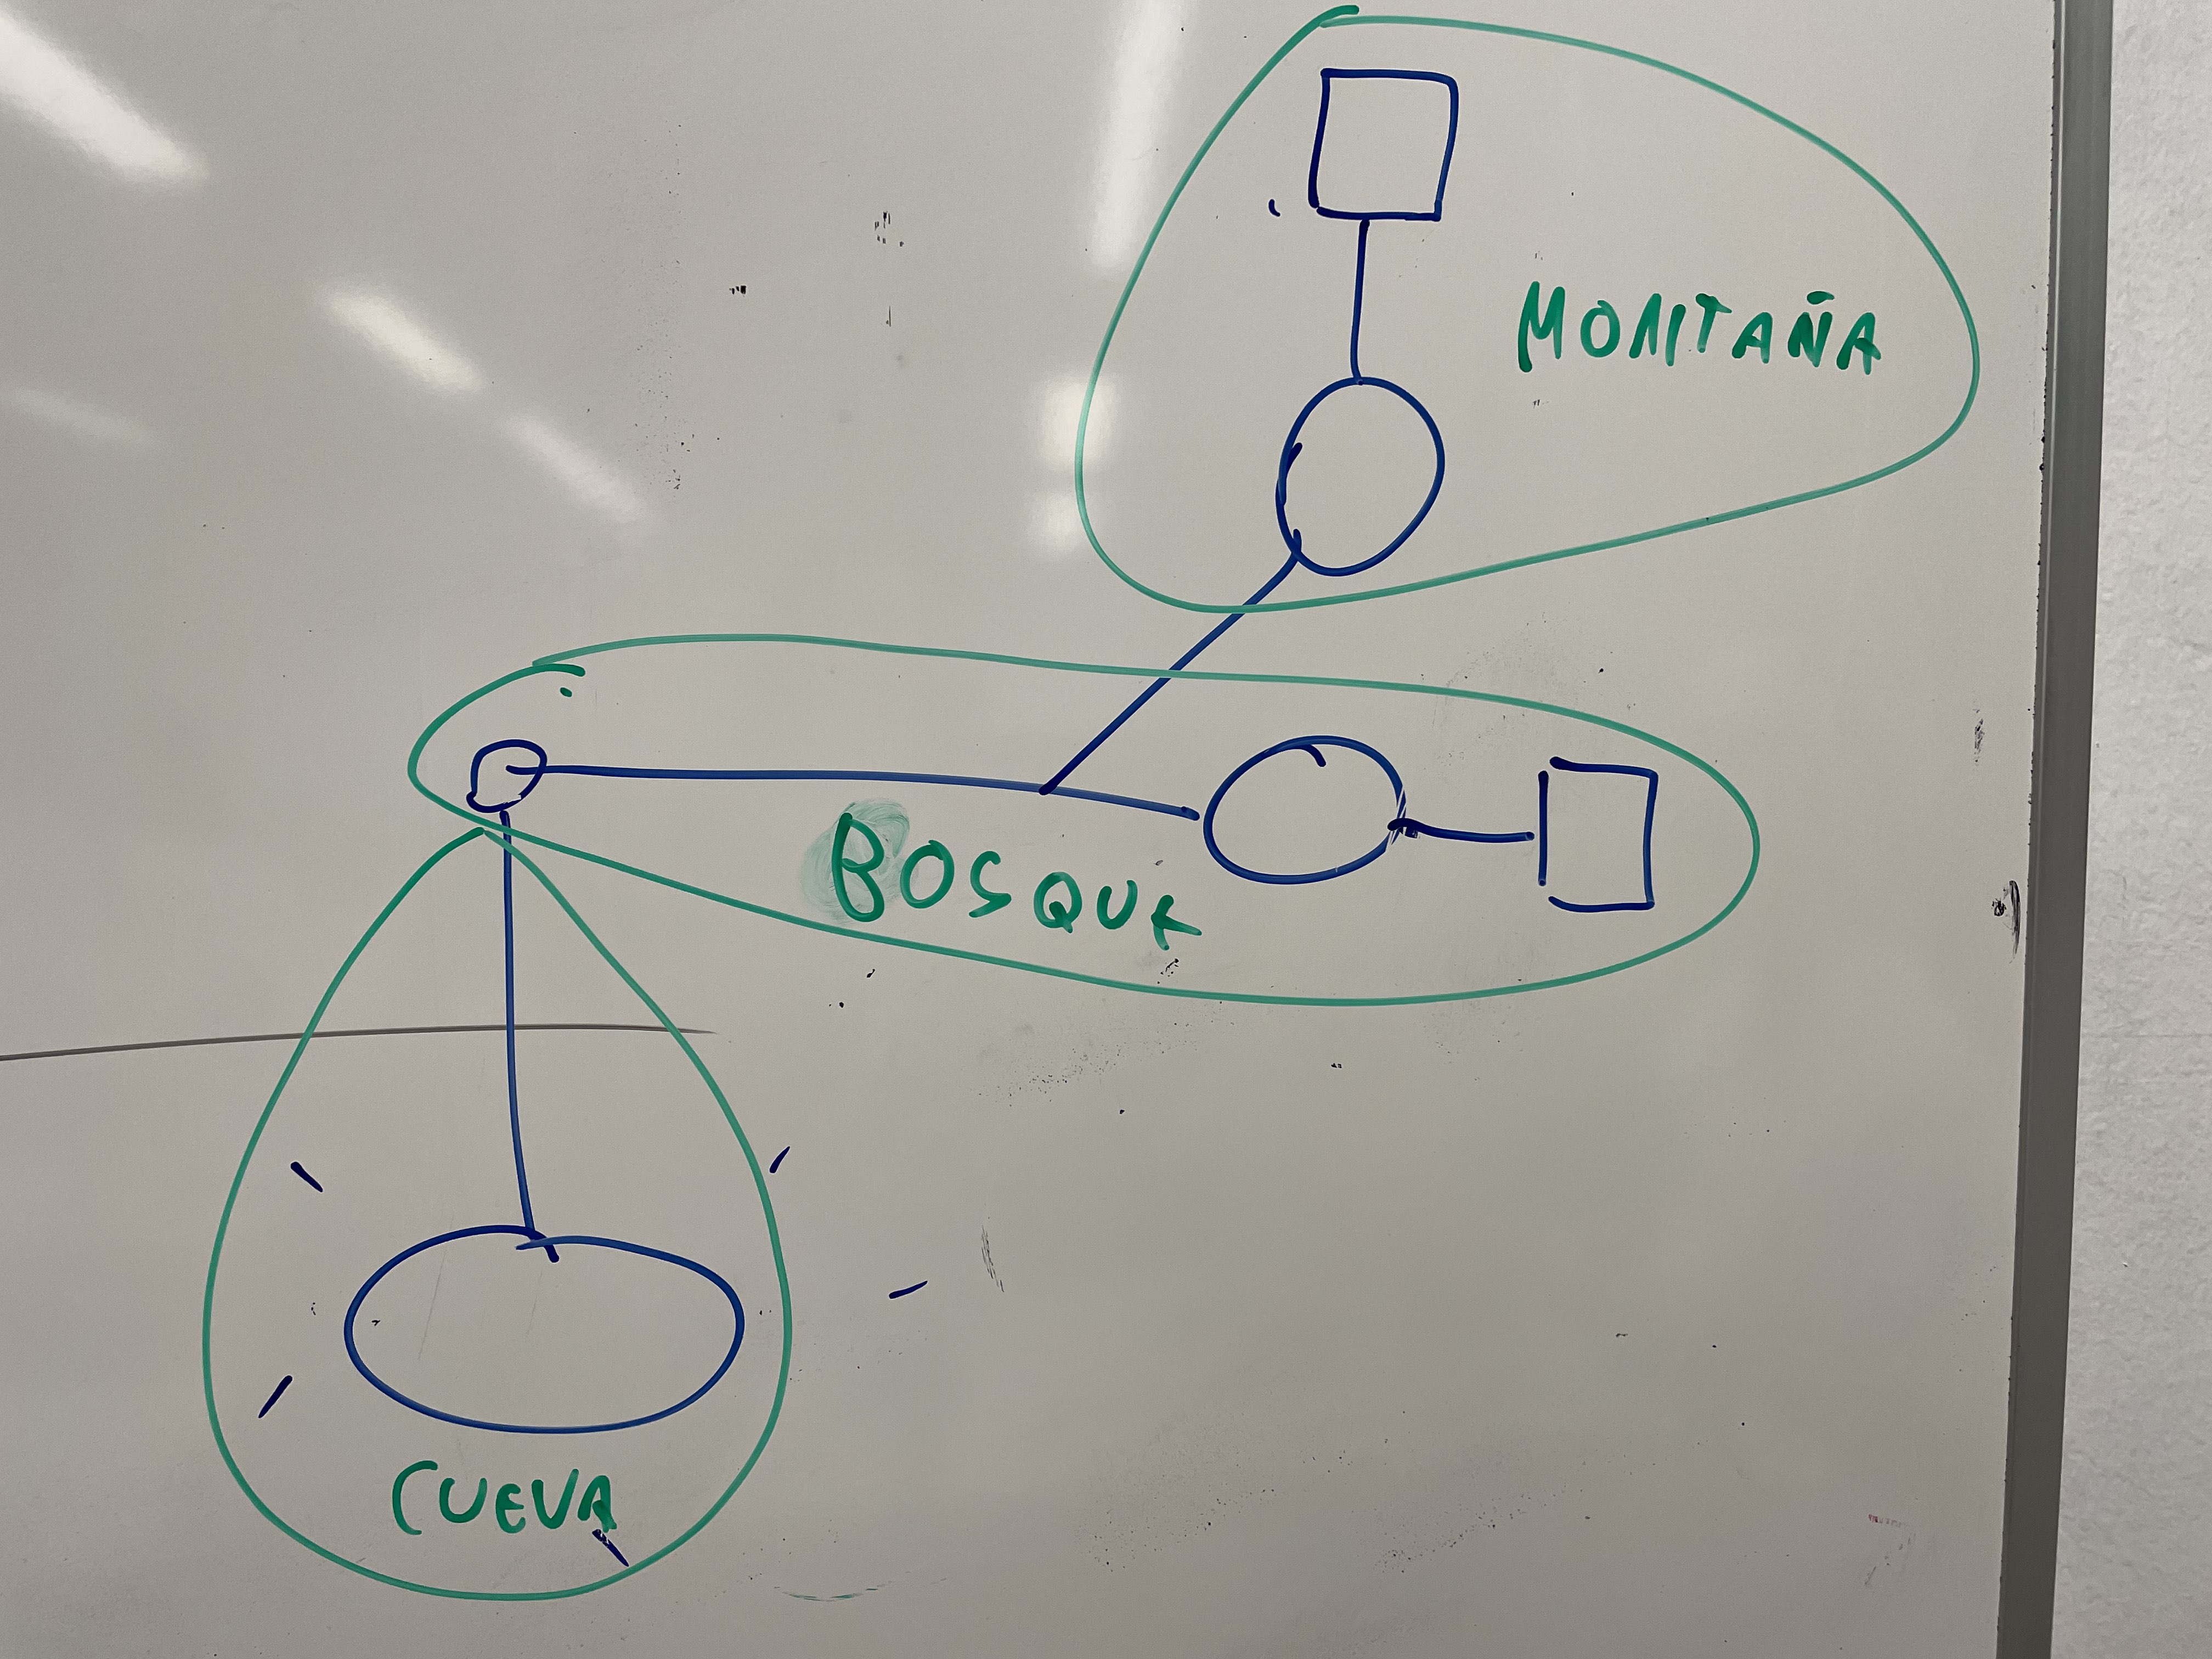 MONTAÑA
BOSQUE
CUEVA